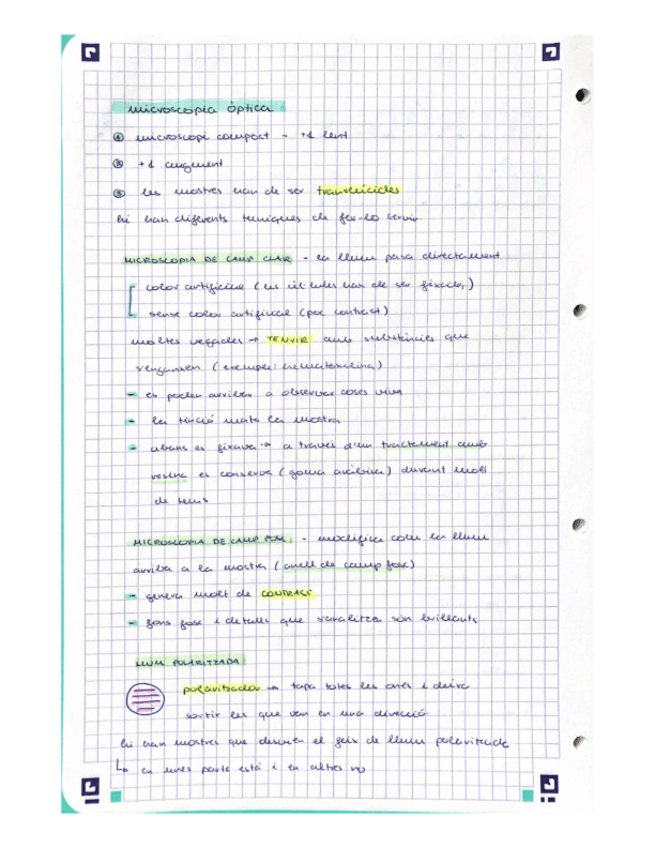 microscopia òptica
① microscopi compost - +1 lent
② +1 augment
③ les mostres han de ser translúcides
hi han diferents tècniques de fer-lo servir
MICROSCOPIA DE CAMP CLAR - la llum passa directament
color artificial (les cèl·lules han de ser fixades)
sense color artificial (poc contrast)
moltes vegades → TENYIR amb substàncies que
s'enganxen (exemple: hematoxilina)
- es poden arribar a observar coses vives
- la tinció mata la mostra
- abans es fixava → a través d'un tractament amb
resina es conserva (goma aràbiga) durant molt
de temps
MICROSCOPIA DE CAMP FOSC - modifica com la llum
arriba a la mostra (anell de camp fosc)
- genera molt de CONTRAST
- fons fosc i detalls que s'analitzen són brillants
LLUM POLARITZADA
polaritzador → tapa totes les ones i deixa
sortir les que van en una direcció
hi han mostres que desvien el feix de llum polaritzada
↳ en unes parts està i en altres no